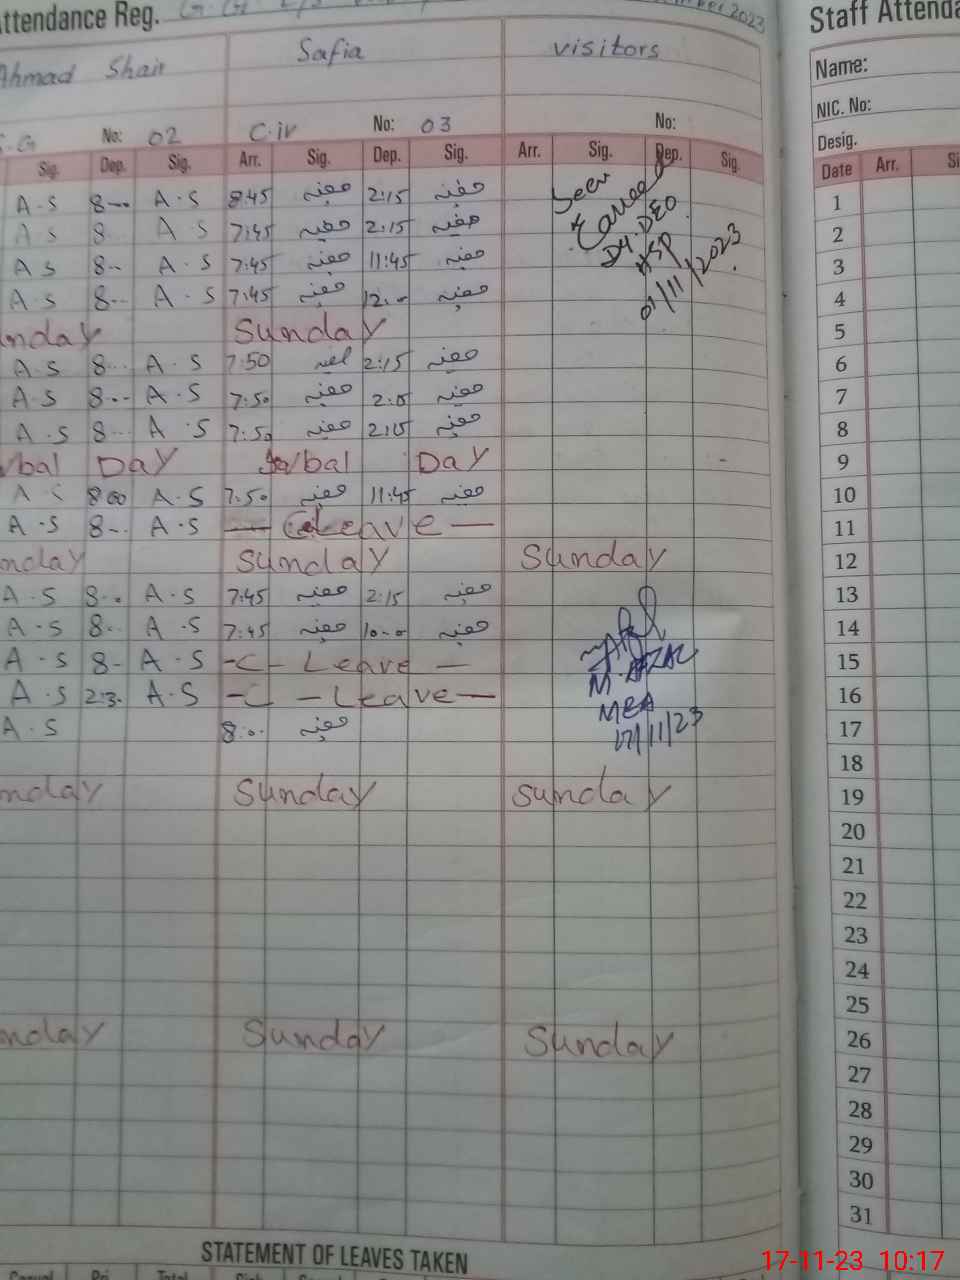 Attendance Reg.
2023
Staff Attenda
Ahmad Shair
Safia
visitors
Name:
NIC. No:
No: 02
C.iv No: 03
No:
Desig.
Sig. Dep. Sig. Arr. Sig. Dep. Sig. Arr. Sig. Dep. Sig.
Date Arr. Si
A.S 8-- A.S 8:45 صفیہ 2:15 صفیہ 1
A S 8.. A S 7:45 صفیہ 2:15 صفیہ 2
A S 8-- A.S 7:45 صفیہ 11:45 صفیہ 3
A.S 8-- A.S 7:45 صفیہ 12:00 صفیہ 4
Seen
Dy. DEO
HSP
01/11/2023
nday Sunday 5
A.S 8... A.S 7:50 2:15 صفیہ 6
A.S 8--- A.S 7:50 صفیہ 2:15 صفیہ 7
A.S 8... A.S 7:50 صفیہ 2:15 صفیہ 8
bal Day bal Day 9
8:00 A.S 7:50 صفیہ 11:45 صفیہ 10
A.S 8-- A.S — C Leave — 11
nday Sunday Sunday 12
A.S 8-. A.S 7:45 صفیہ 2:15 صفیہ 13
A.S 8-. A.S 7:45 صفیہ 10:00 صفیہ 14
A.S 8- A.S -C- Leave — 15
A.S 2:3. A.S -C - Leave — 16
A.S 8:0. صفیہ 17
M. AFZAL
MEA
17/11/23
18
nday Sunday Sunday 19
20
21
22
23
24
25
nday Sunday Sunday 26
27
28
29
30
31
STATEMENT OF LEAVES TAKEN
Casual Pri. Total
17-11-23 10:17